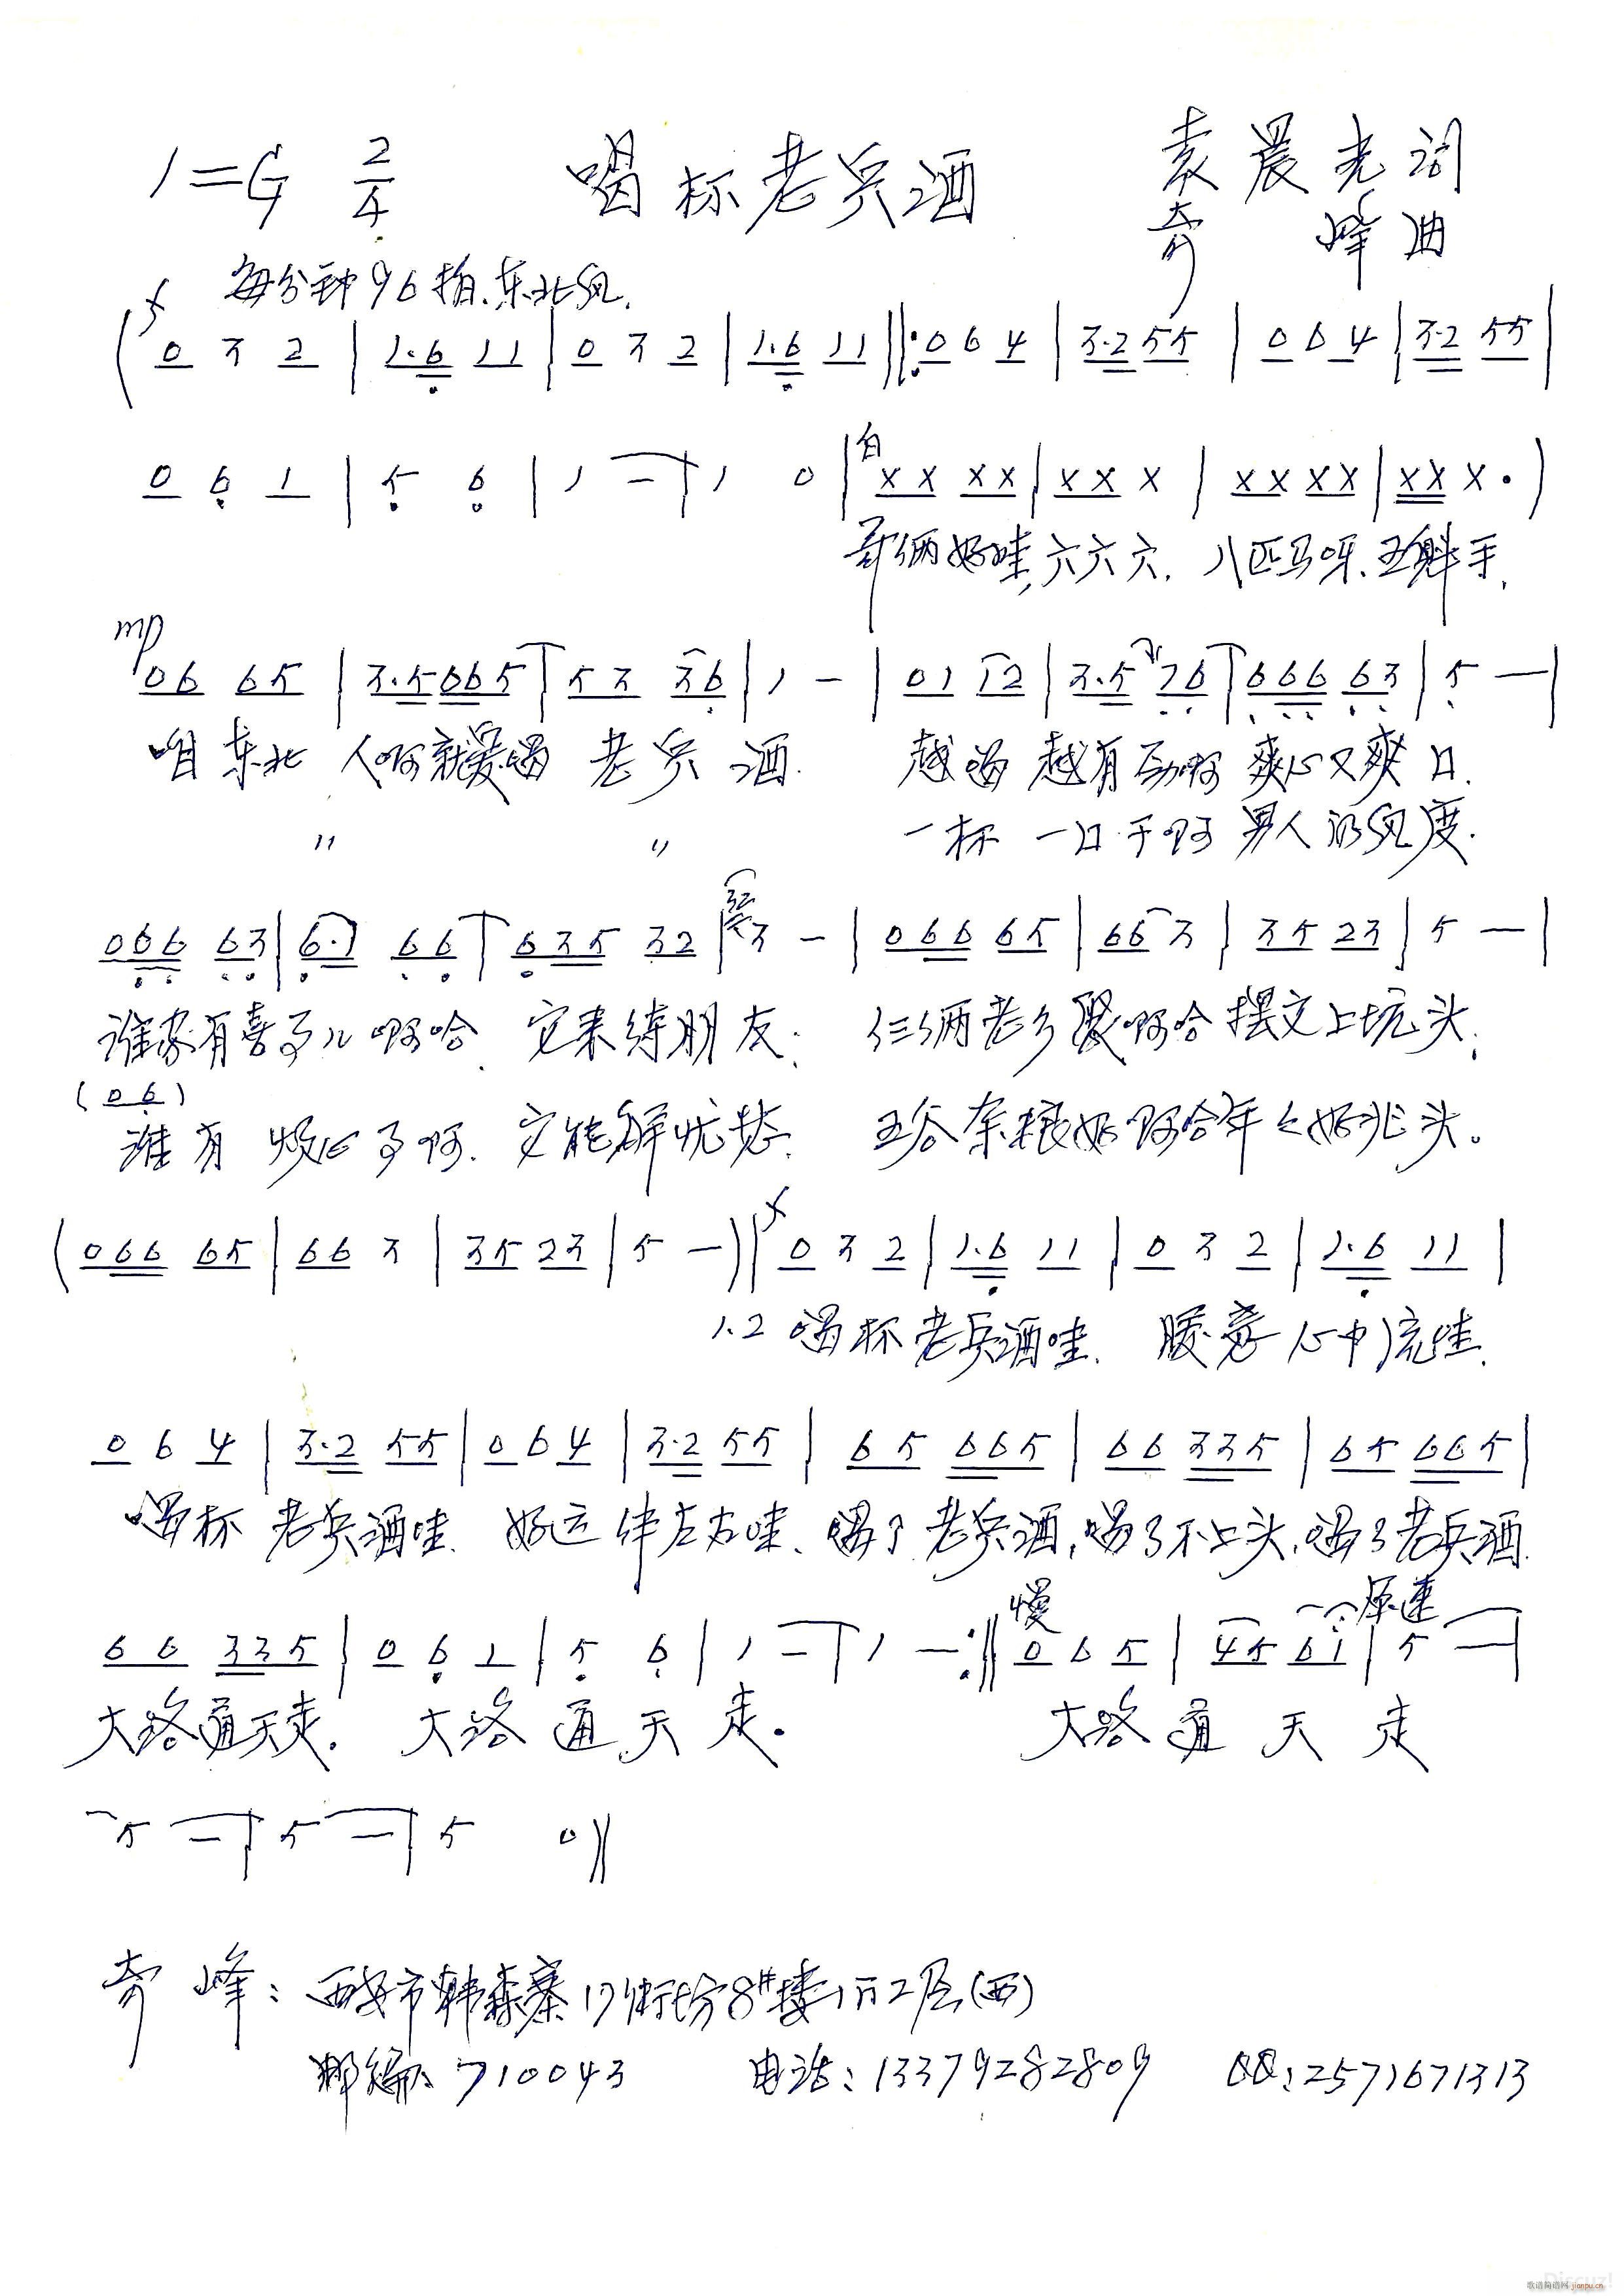 1=G 2/4 喝杯老兵酒 袁晨光词
奇峰曲
每分钟96拍.东北风.
f
( 0 3 2 | 1·6 11 | 0 3 2 | 1·6 11 ‖: 0 6 4 | 3·2 55 | 0 6 4 | 3·2 55 |
0 6 1 | 5 6 | 1 — | 1 0 | 白 XX XX | XX X | XX XX | XX X· )
哥俩好哇,六六六. 八匹马呀.五魁手.
mp
06 65 | 3·5 065 | 53 36 | 1 — | 01 12 | 3·5 76 | 666 63 | 5 — |
咱东北 人啊就爱喝 老兵酒. 越喝越有劲啊 爽心又爽口.
〃 〃 一杯 一口干啊 男人的风度.
066 63 | 6·1 66 | 635 32 | 3 — | 066 65 | 66 3 | 35 23 | 5 — |
谁家有喜事儿啊哈. 它来练朋友. 仨俩老乡聚啊哈摆文上坑头.
(06)
谁有 烦心事啊. 它能解忧愁. 五谷杂粮好啊哈年々好兆头。
( 066 65 | 66 3 | 35 23 | 5 — ) ‖ f 0 3 2 | 1·6 11 | 0 3 2 | 1·6 11 |
1.2 喝杯老兵酒哇. 暖意心中流哇.
0 6 4 | 3·2 55 | 0 6 4 | 3·2 55 | 65 665 | 66 335 | 65 665 |
喝杯 老兵酒哇. 好运伴左右哇. 喝了老兵酒,喝了不上头,喝了老兵酒.
慢 原速
66 335 | 0 6 1 | 5 6 | 1 — | 1 — :‖ 0 6 5 | 45 61 | 5 — |
大路通天走. 大路通天走. 大路通天走
5 — | 5 — | 5 0 ‖
奇峰: 西安市韩森寨17街坊8#楼1门2层(西)
邮编: 710043 电话: 13379282809 QQ: 2571671313
歌谱简谱网 jianpu.cn